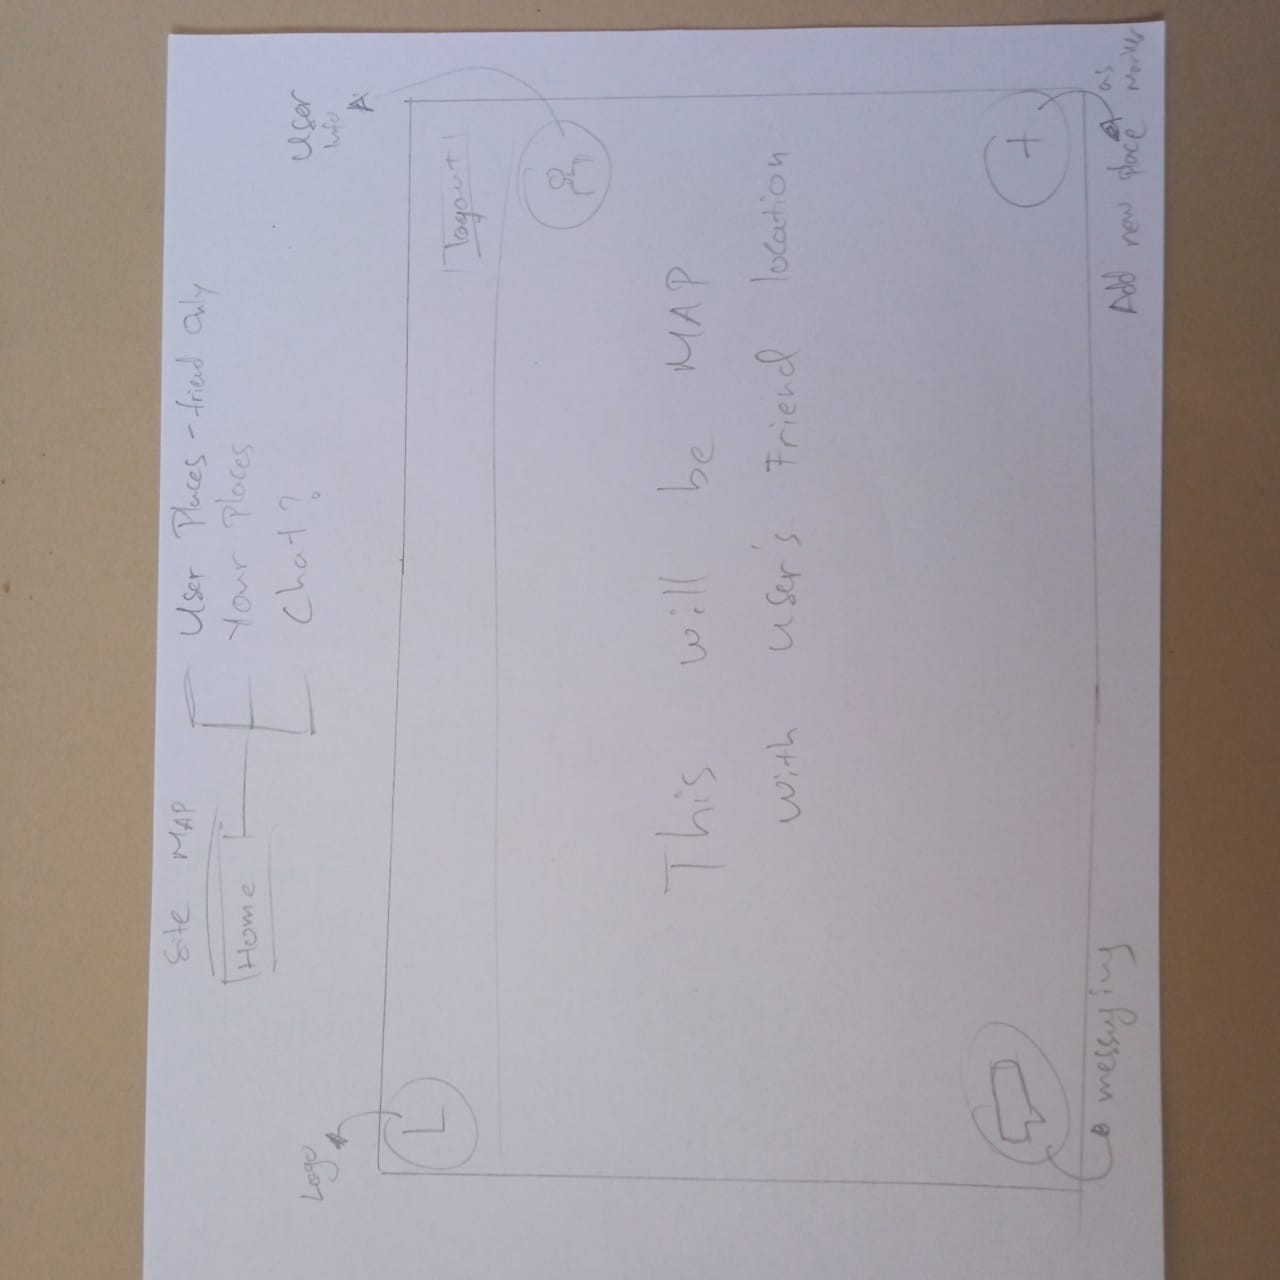 Site MAP
Home
User Places - friend Only
Your Places
Chat?
Logo
User
Info
L
logout
This will be MAP
with user's Friend location
+
messying
Add new place as
Marker